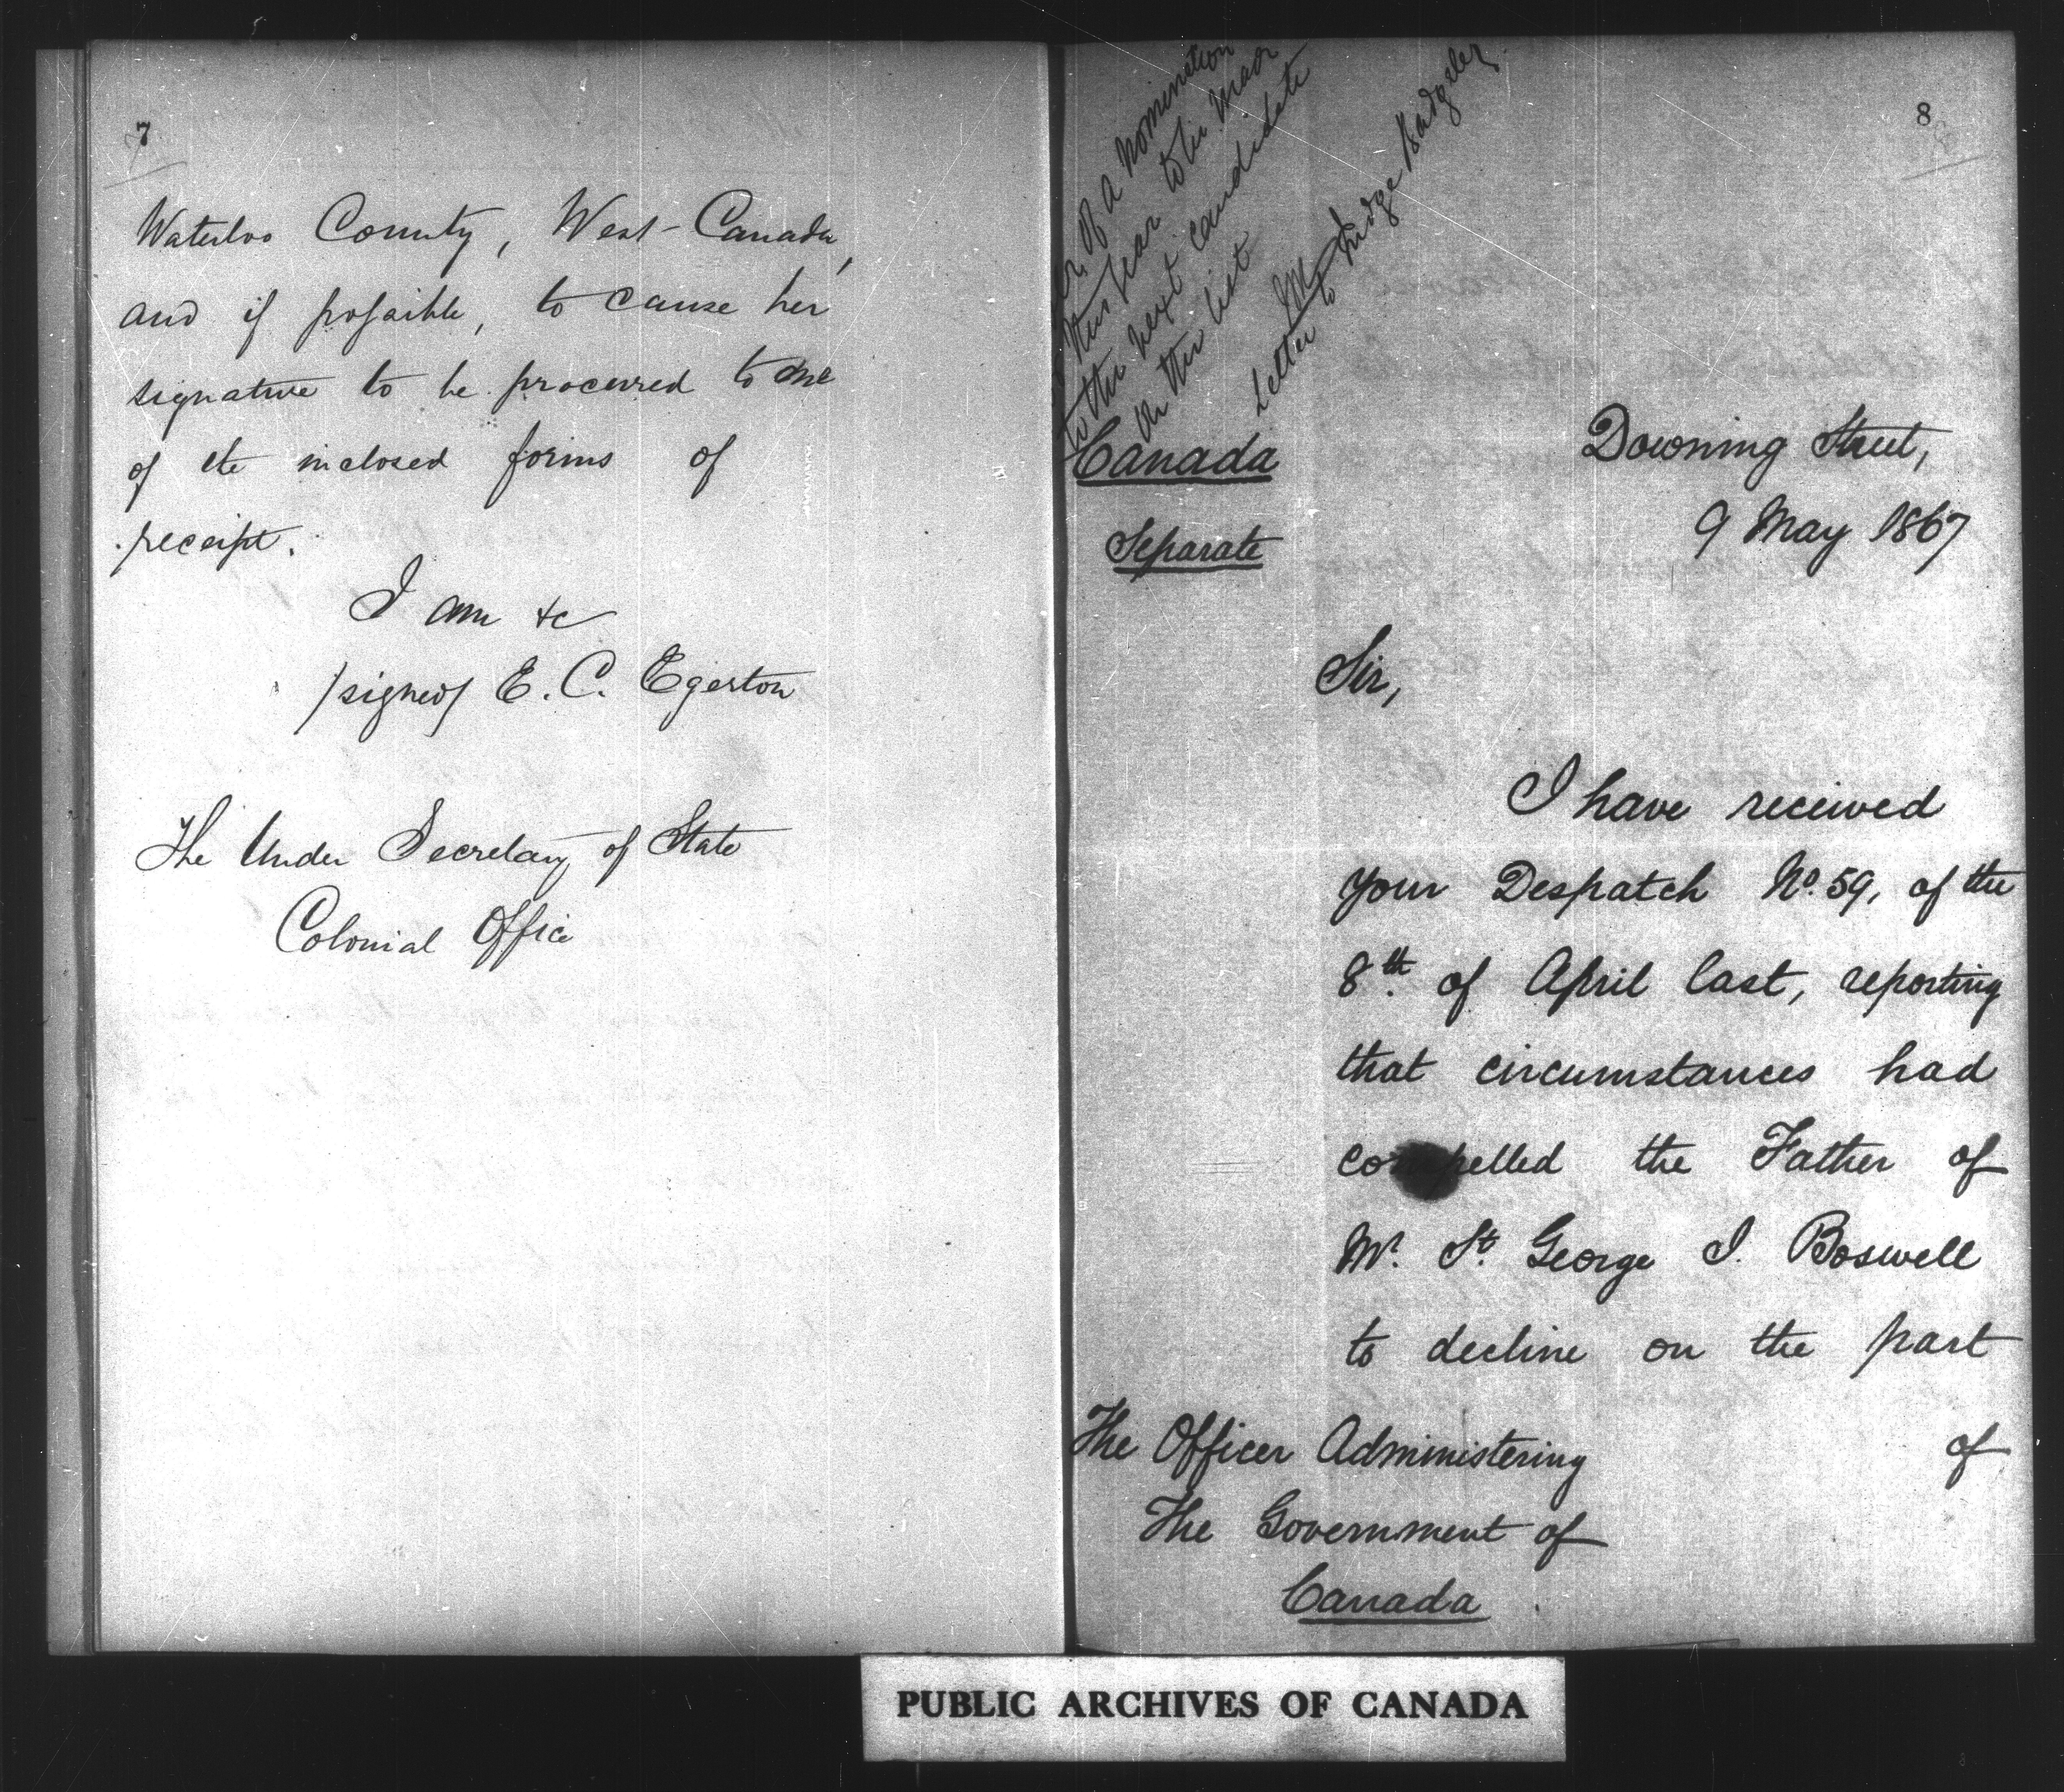 7
Waterloo County, West-Canada,
and if possible, to cause her
signature to be procured to one
of the inclosed forms of
receipt.
I am &c
/signed/ E. C. Egerton
The Under Secretary of State
Colonial Office
8
of a nomination
this year to be made
to the next candidate
on the list
Letter to Mr Judge Badgley
Canada
Separate
Downing Street,
9 May 1867
Sir,
I have received
your Despatch No. 59, of the
8th. of April last, reporting
that circumstances had
compelled the Father of
Mr. St. George I. Boswell
to decline on the part
of
The Officer Administering
The Government of
Canada
PUBLIC ARCHIVES OF CANADA